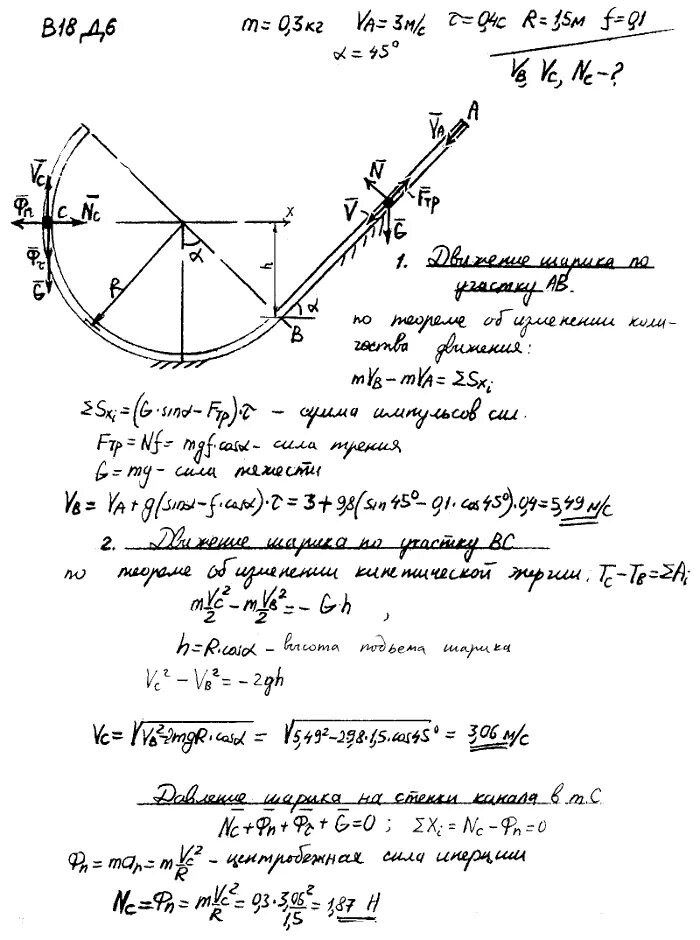 В18 Д6 m = 0,3 кг V_A = 3 м/с τ = 0,4с R = 1,5м f = 0,1
α = 45°
V_B, V_C, N_C - ?
A
V̄_A
N̄
F̄тр
V̄
Ḡ
V̄_C
Φ̄_n C N̄_C x
Φ̄_τ
Ḡ
R
α
h
α
B
1. Движение шарика по
участку АВ.
по теореме об изменении коли-
чества движения:
mV_B - mV_A = ΣSx_i
ΣSx_i = (G·sinα - Fтр)·τ - сумма импульсов сил.
Fтр = Nf = mgf·cosα - сила трения
G = mg - сила тяжести
V_B = V_A + g(sinα - f·cosα)·τ = 3 + 9,8(sin 45° - 0,1·cos 45°)·0,4 = 5,49 м/с
2. Движение шарика по участку ВС
по теореме об изменении кинетической энергии: T_C - T_B = ΣA_i
mV_C²/2 - mV_B²/2 = - Gh ,
h = R·cosα - высота подъема шарика
V_C² - V_B² = - 2gh
V_C = √(V_B² - 2mgR·cosα) = √(5,49² - 2·9,8·1,5·cos 45°) = 3,06 м/с
Давление шарика на стенки канала в т.С
N̄_C + Φ̄_n + Φ̄_τ + Ḡ = 0 ; ΣX_i = N_C - Φ_n = 0
Φ_n = ma_n = m V_C²/R - центробежная сила инерции
N_C = Φ_n = m V_C²/R = 0,3·3,06²/1,5 = 1,87 Н